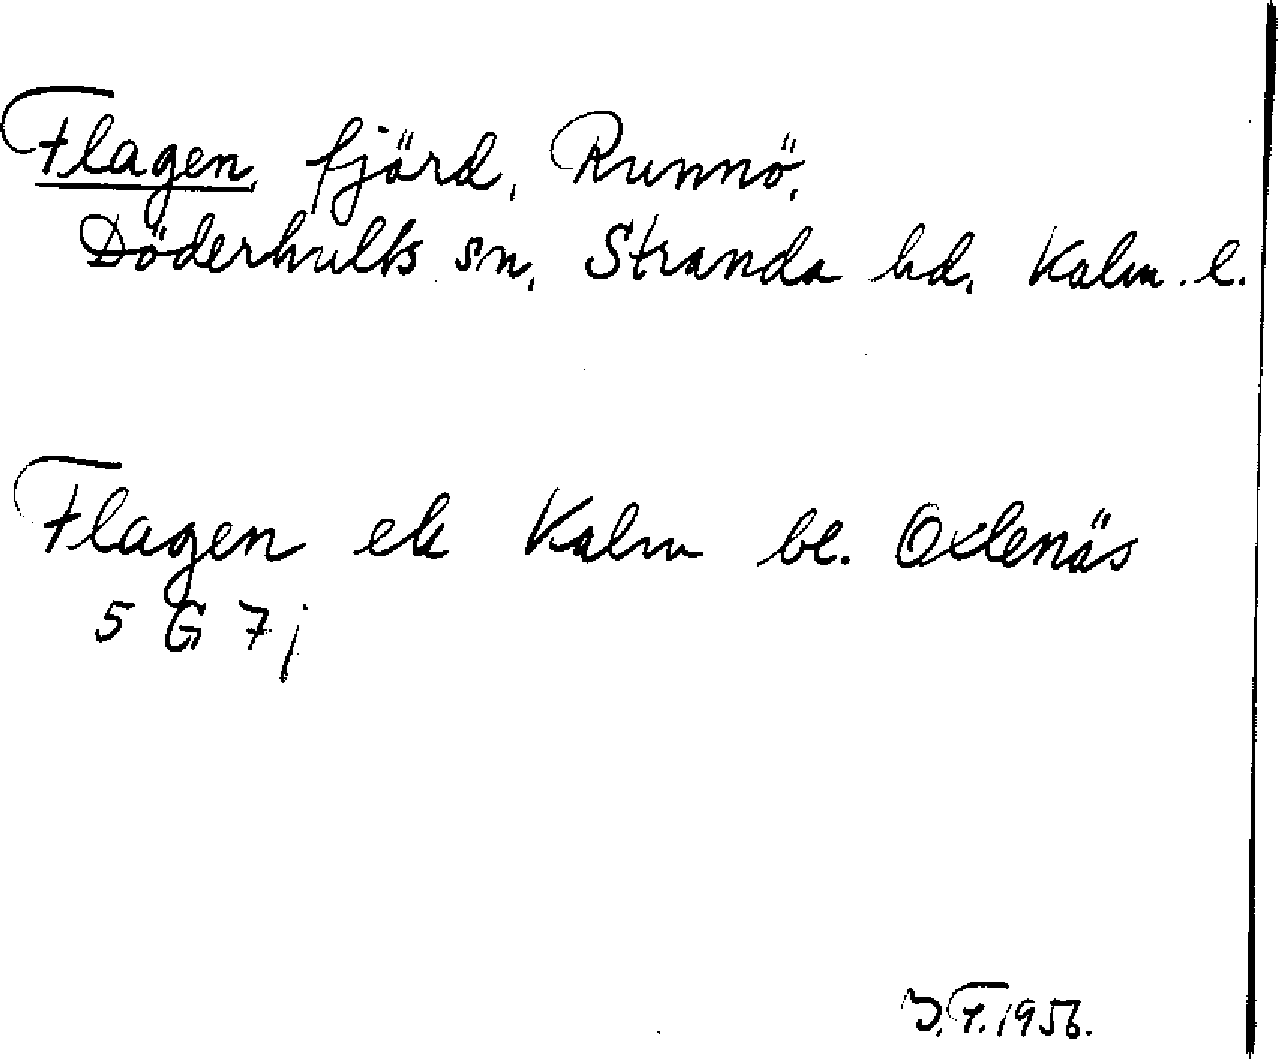 Flagen, fjörd, Runnö,
Döderhults sn, Stranda hd, Kalm. l.
Flagen ek Kalm bl. Oxlenäs
5 G 7j
J.F. 1956.